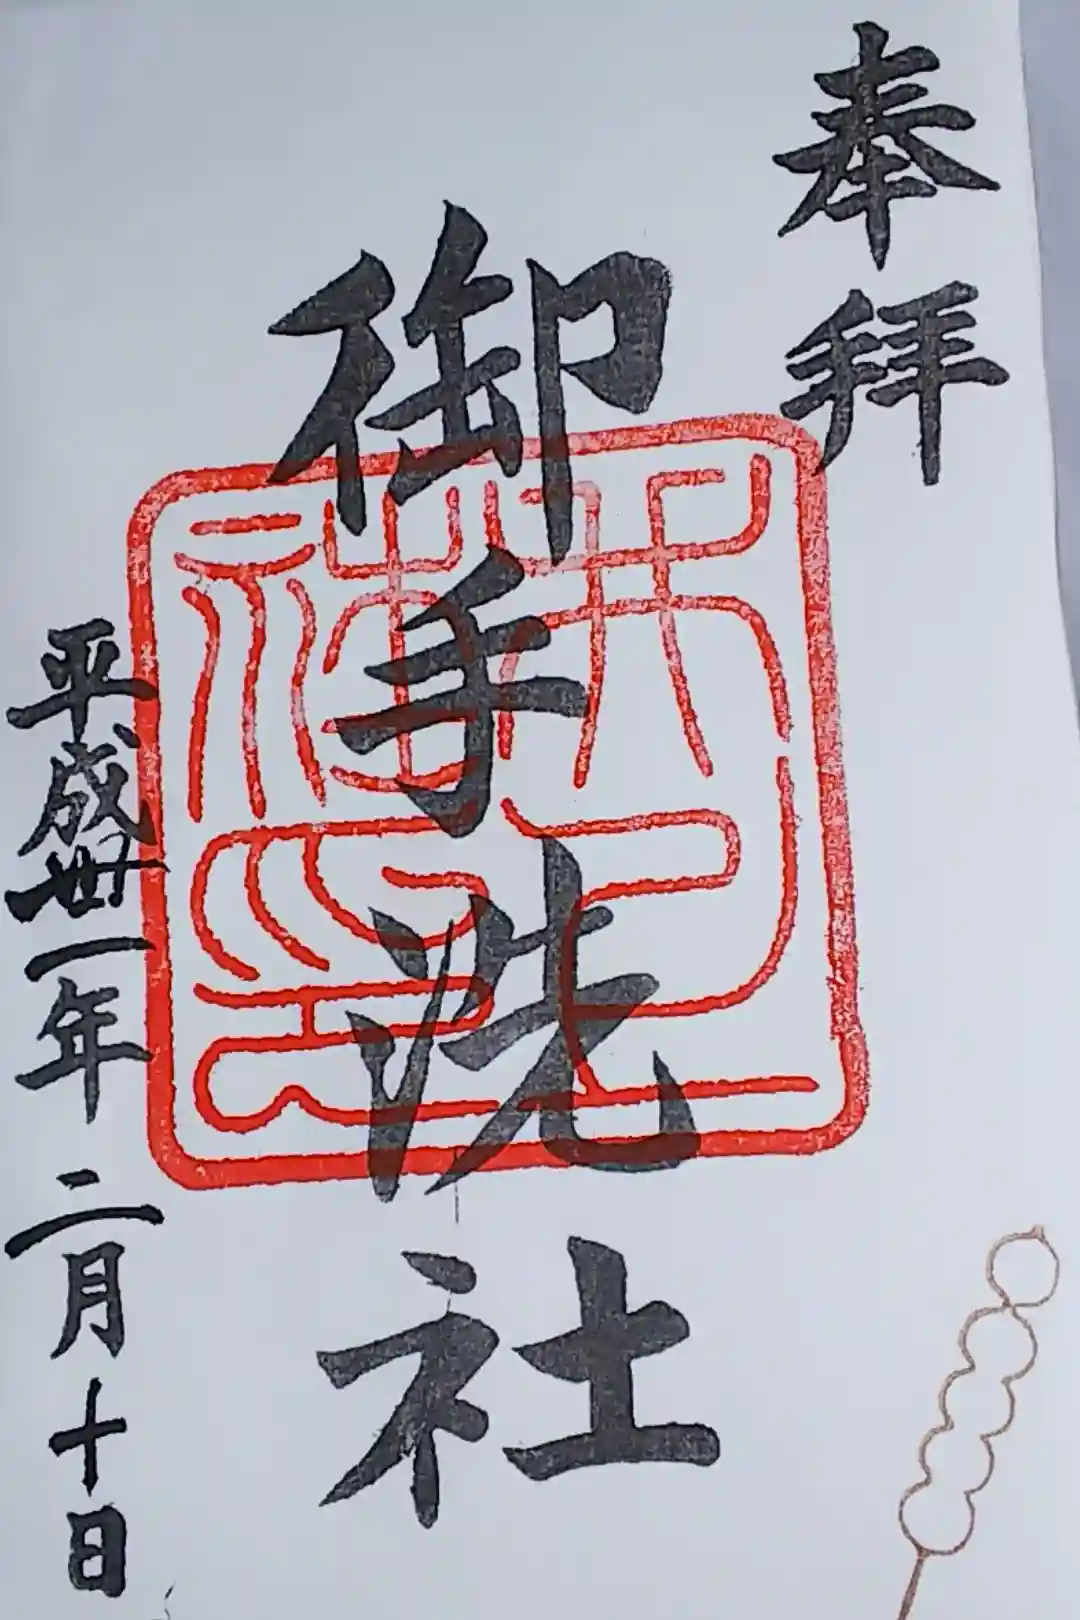 奉拝
御手洗社
平成卅一年二月十日